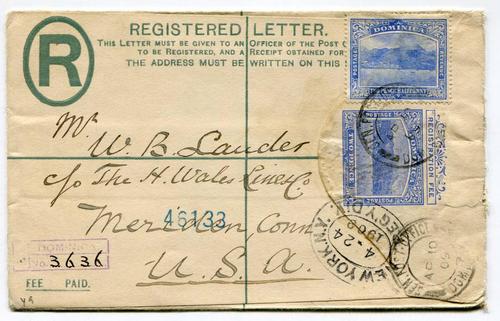 REGISTERED LETTER.
THIS LETTER MUST BE GIVEN TO AN OFFICER OF THE POST
TO BE REGISTERED, AND A RECEIPT OBTAINED FOR
THE ADDRESS MUST BE WRITTEN ON THIS
R
DOMINICA
POSTAGE
REVENUE
TWO PENCE HALFPENNY
DOMINICA
POSTAGE
REGISTRATION FEE
Mr
W. B. Lauder
c/o The H. Wales Lines Co
Meriden Conn
46133
U.S.A.
NEW YORK, N.Y.
REG'Y DIV.
4-24
1909
DOMINICA
No 3636
FEE PAID.
DOMINICA
AP 10
09